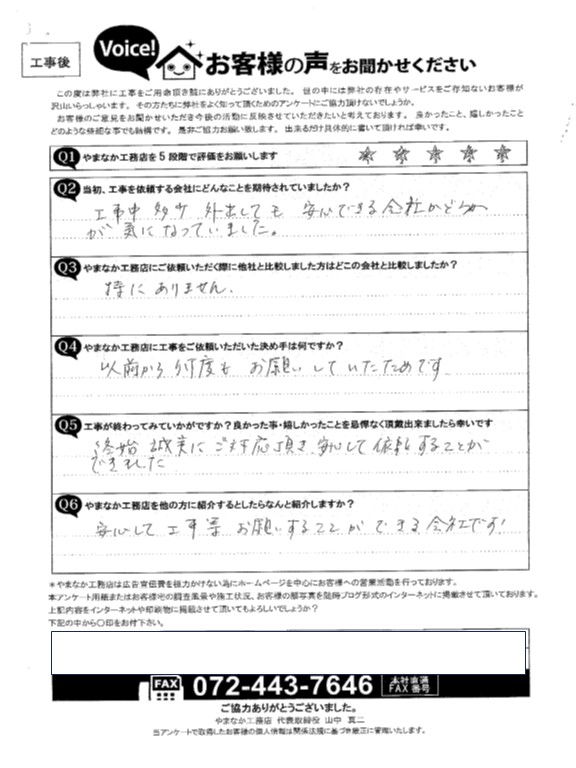 工事後
Voice!
お客様の声をお聞かせください
この度は弊社に工事をご用命頂き誠にありがとうございました。 世の中には弊社の存在やサービスをご存知ないお客様が
沢山いらっしゃいます。 その方たちに弊社をよく知って頂くためのアンケートにご協力頂けないでしょうか。
お客様のご意見をお聞かせいただき今後の活動に反映させていただきたいと考えております。 良かったこと、嬉しかったこと
どのような些細な事でも結構です。 是非ご協力お願い致します。 出来るだけ具体的に書いて頂ければ幸いです。
Q1 やまなか工務店を5段階で評価をお願いします ☆ ☆ ☆ ☆ ☆
Q2 当初、工事を依頼する会社にどんなことを期待されていましたか?
工事中 多少 外出しても 安心できる会社かどうか
が 気になっていました。
Q3 やまなか工務店にご依頼いただく際に他社と比較しました方はどこの会社と比較しましたか?
特に ありません.
Q4 やまなか工務店に工事をご依頼いただいた決め手は何ですか?
以前から 何度も お願いしていたためです
Q5 工事が終わってみていかがですか?良かった事・嬉しかったことを忌憚なく頂戴出来ましたら幸いです
終始 誠実に ご対応頂き 安心して 依頼することが
できました
Q6 やまなか工務店を他の方に紹介するとしたらなんと紹介しますか?
安心して 工事等 お願いすることが できる 会社です!
*やまなか工務店は広告宣伝費を極力かけない為にホームページを中心にお客様への営業活動を行っております。
本アンケート用紙またはお客様宅の調査風景や施工状況、お客様の顔写真を随時ブログ形式のインターネットに掲載させて頂いております。
上記内容をインターネットや印刷物に掲載させて頂いてもよろしいでしょうか?
下記の中から○印をお付下さい。
FAX 072-443-7646 本社直通 FAX番号
ご協力ありがとうございました。
やまなか工務店 代表取締役 山中 真二
当アンケートで取得したお客様の個人情報は関係法規に基づき厳正に管理いたします。